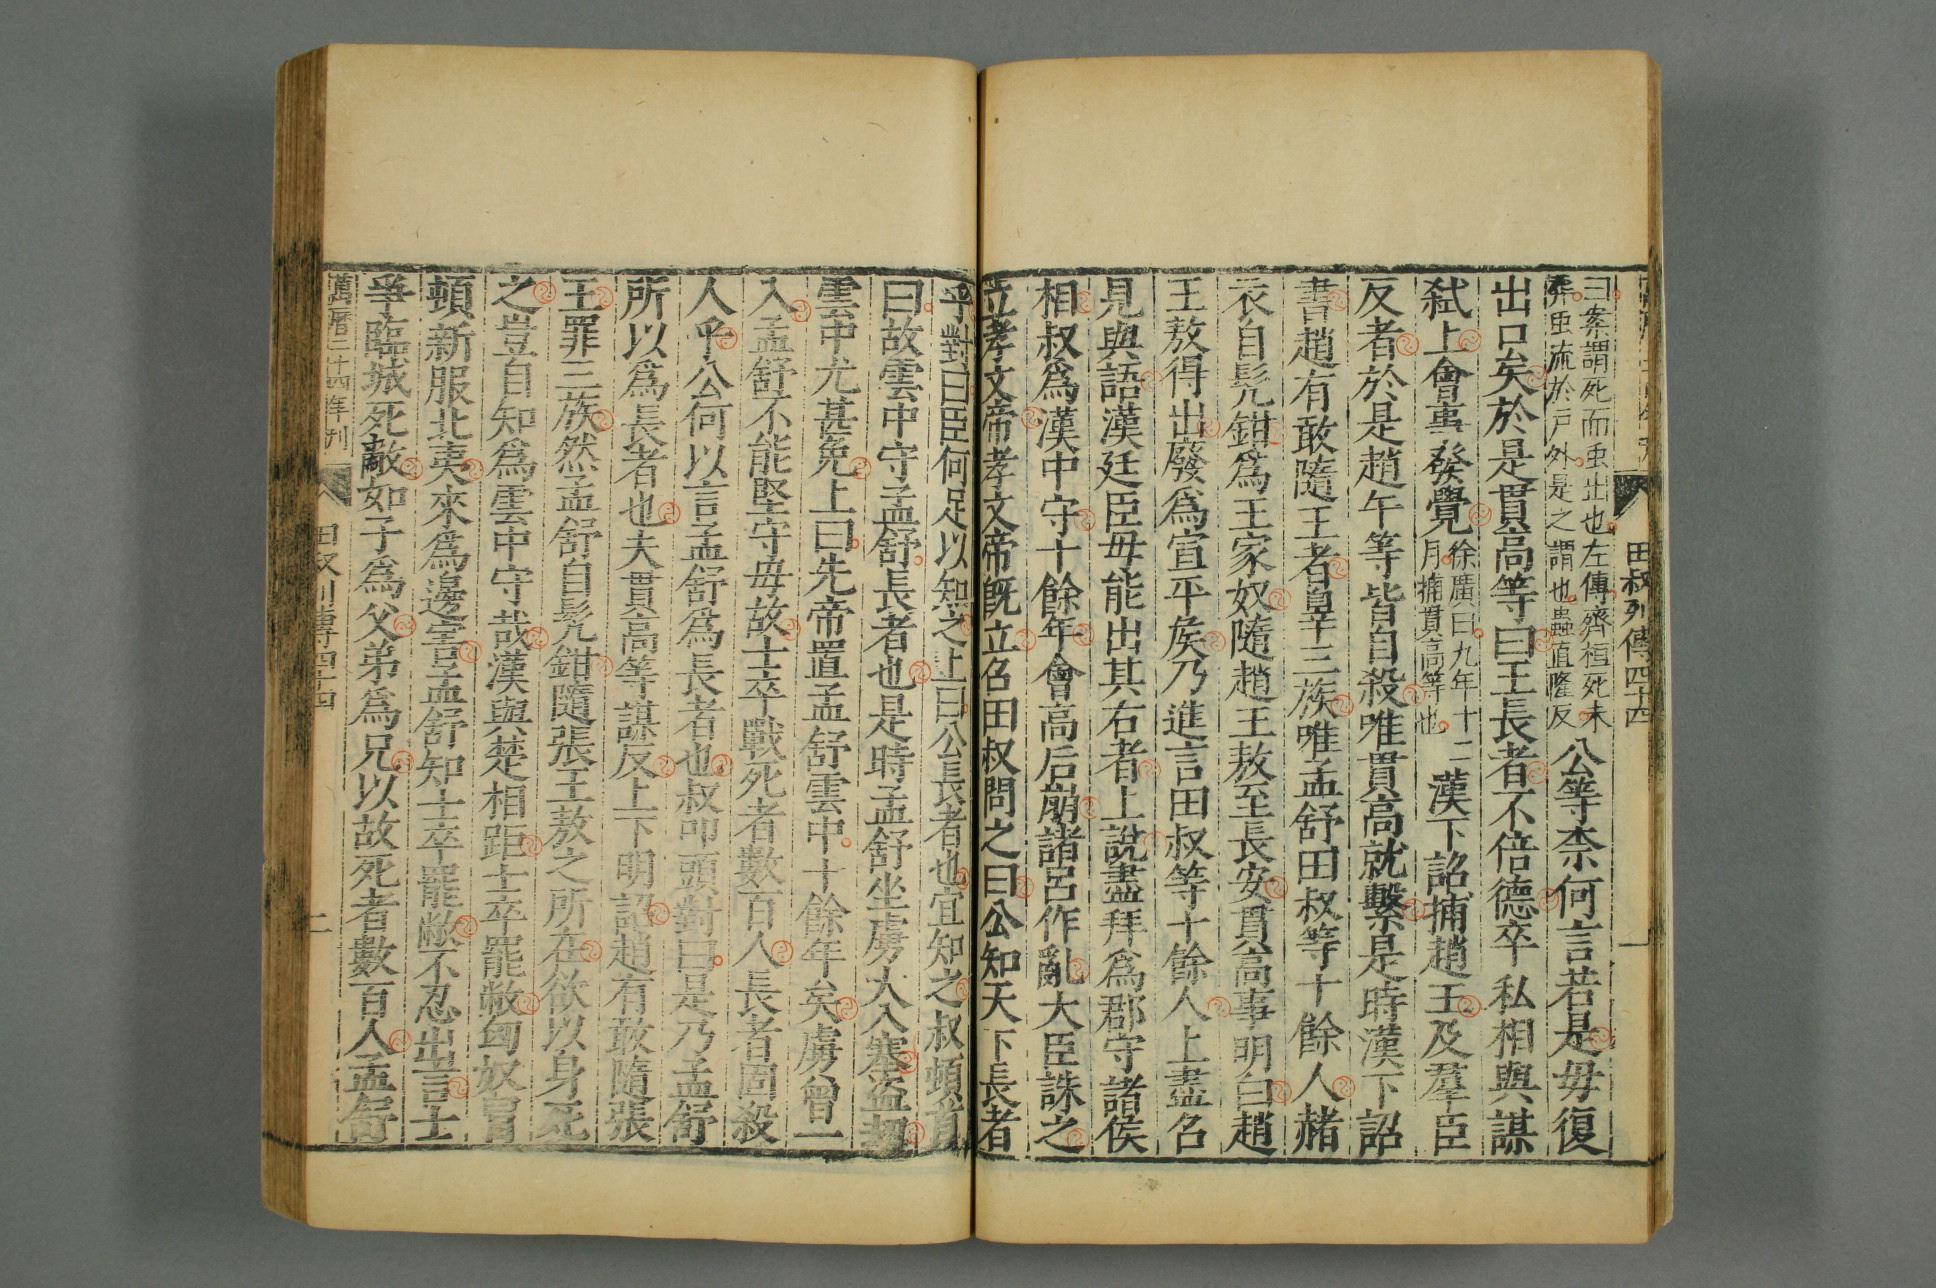 田叔列傳四十四
一
曰案謂死而虫出也左傳齊桓死未
葬虫流於戶外是之謂也蟲值隆反
公等柰何言若是毋復
出口矣於是貫高等曰王長者不倍德卒私相與謀
弑上會事發覺
徐廣曰九年十二
月捕貫高等也
漢下詔捕趙王及羣臣
反者於是趙午等皆自殺唯貫高就繫是時漢下詔
書趙有敢隨王者辠三族唯孟舒田叔等十餘人赭
衣自髠鉗爲王家奴隨趙王敖至長安貫高事明白趙
王敖得出廢爲宣平矦乃進言田叔等十餘人上盡召
見與語漢廷臣毋能出其右者上說盡拜爲郡守諸侯
相叔爲漢中守十餘年會高后崩諸呂作亂大臣誅之
立孝文帝孝文帝旣立召田叔問之曰公知天下長者
乎對曰臣何足以知之上曰公長者也宜知之叔頓首
曰故雲中守孟舒長者也是時孟舒坐虜大入塞盜刼
雲中尤甚免上曰先帝置孟舒雲中十餘年矣虜曾一
入孟舒不能堅守毋故士卒戰死者數百人長者固殺
人乎公何以言孟舒爲長者也叔叩頭對曰是乃孟舒
所以爲長者也夫貫高等謀反上下明詔趙有敢隨張
王罪三族然孟舒自髠鉗隨張王敖之所在欲以身死
之豈自知爲雲中守哉漢與楚相距士卒罷敝匈奴冒
頓新服北夷來爲邊害孟舒知士卒罷敝不忍出言士
爭臨城死敵如子爲父弟爲兄以故死者數百人孟舒
萬曆二十四年刊
田叔列傳四十四
二